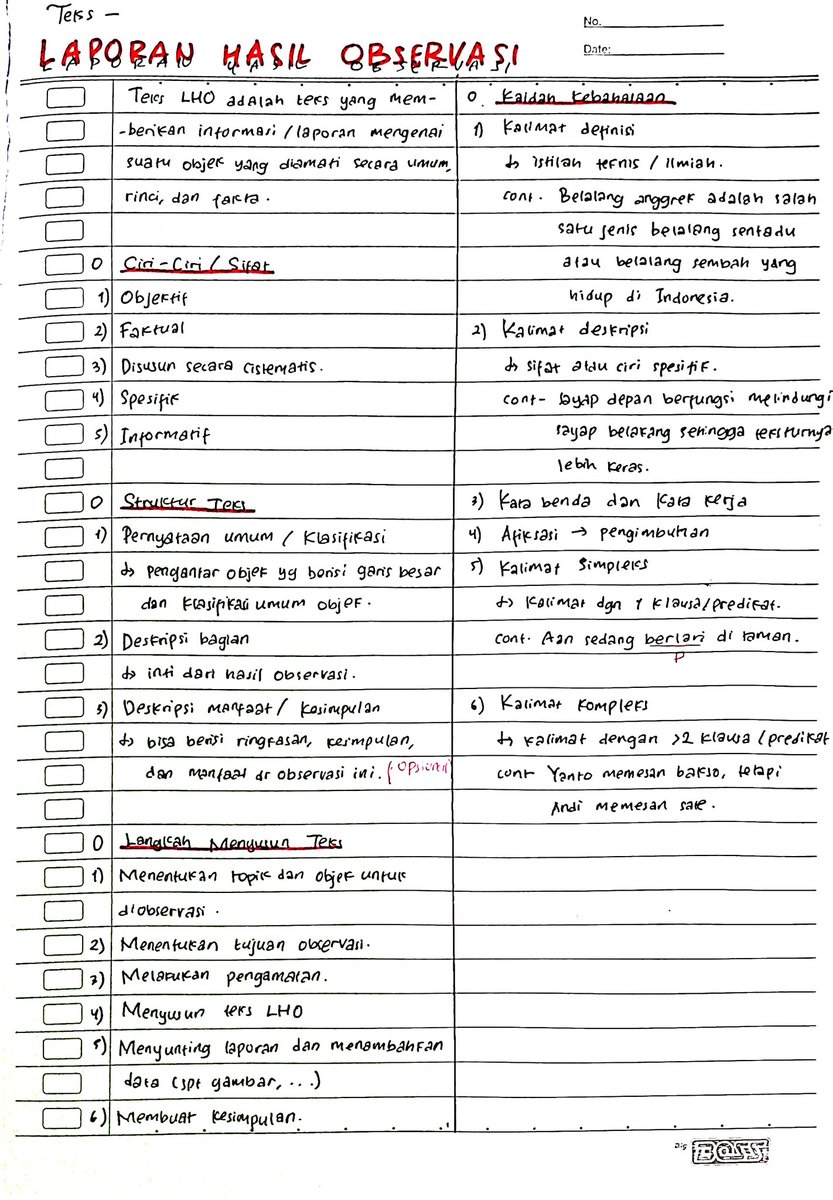 Teks -
LAPORAN HASIL OBSERVASI
No.
Date:
Teks LHO adalah teks yang mem-
-berikan informasi / laporan mengenai
suatu objek yang diamati secara umum,
rinci, dan fakta.
0 Ciri-Ciri / Sifat
1) Objektif
2) Faktual
3) Disusun secara cistematis.
4) Spesifik
5) Informatif
0 Struktur Teks
1) Pernyataan umum / Klasifikasi
↳ pengantar objek yg berisi garis besar
dan klasifikasi umum objek.
2) Deskripsi bagian
↳ inti dari hasil observasi.
3) Deskripsi manfaat / kesimpulan
↳ bisa berisi ringkasan, kesimpulan,
dan manfaat dr observasi ini. (opsional)
0 Langkah Menyusun Teks
1) Menentukan topik dan objek untuk
diobservasi.
2) Menentukan tujuan observasi.
3) Melakukan pengamatan.
4) Menyusun teks LHO
5) Menyunting laporan dan menambahkan
data (spt gambar, ...)
6) Membuat kesimpulan.
0. Kaidah Kebahasaan
1) Kalimat definisi
↳ istilah teknis / ilmiah.
cont. Belalang anggrek adalah salah
satu jenis belalang sentadu
atau belalang sembah yang
hidup di Indonesia.
2) Kalimat deskripsi
↳ sifat atau ciri spesifik.
cont- sayap depan berfungsi melindungi
sayap belakang sehingga teksturnya
lebih keras.
3) Kata benda dan Kata kerja
4) Afiksasi → pengimbuhan
5) Kalimat Simpleks
↳ Kalimat dgn 1 klausa/predikat.
cont. Aan sedang berlari di taman.
P
6) Kalimat Kompleks
↳ kalimat dengan >2 klausa/predikat
cont- Yanto memesan bakso, tetapi
Andi memesan sate.
BIG
BOSS